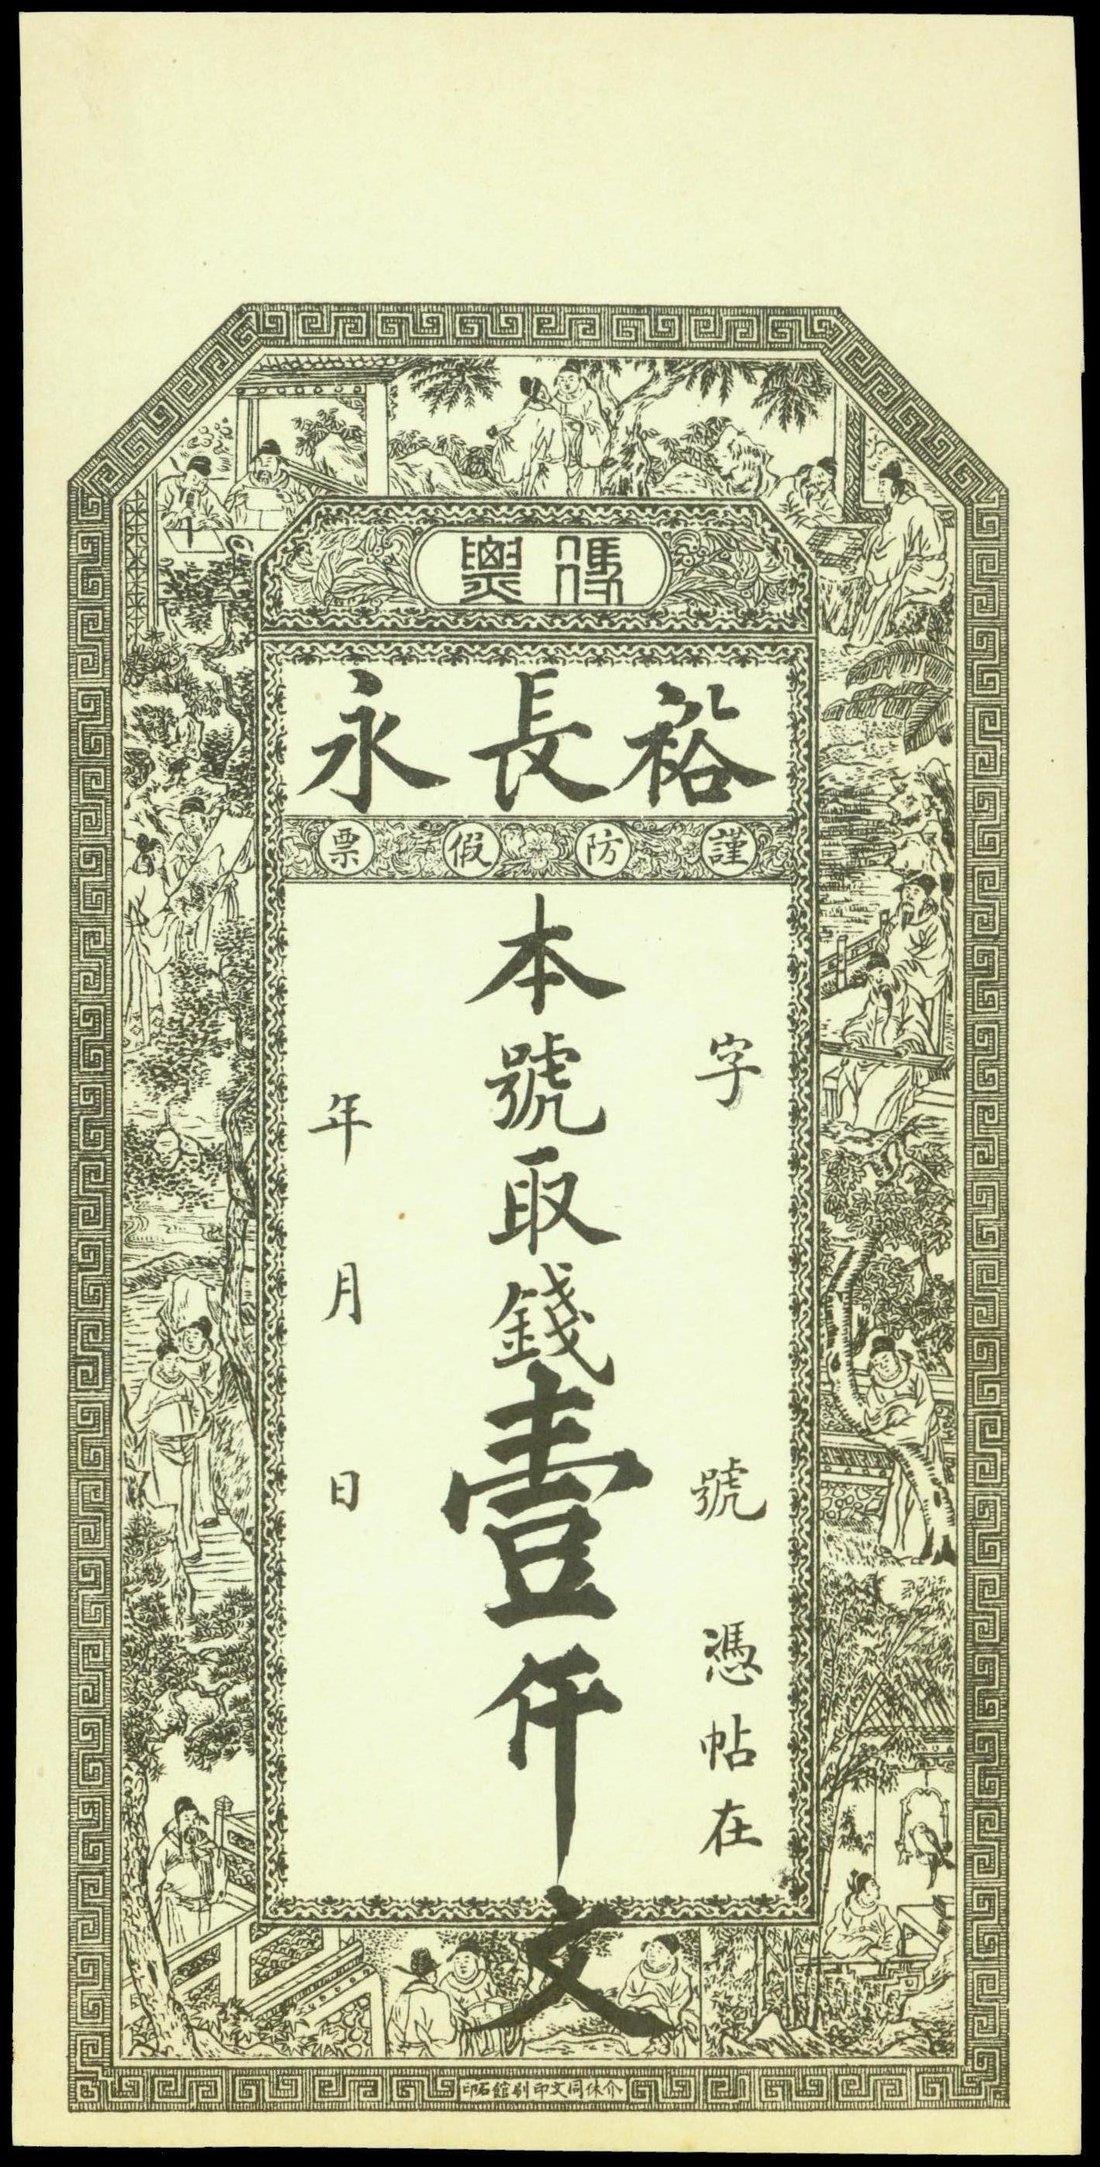 裕長永
謹防假票
字 號 憑帖在
本號取錢壹仟文
年 月 日
介休同文印刷館石印